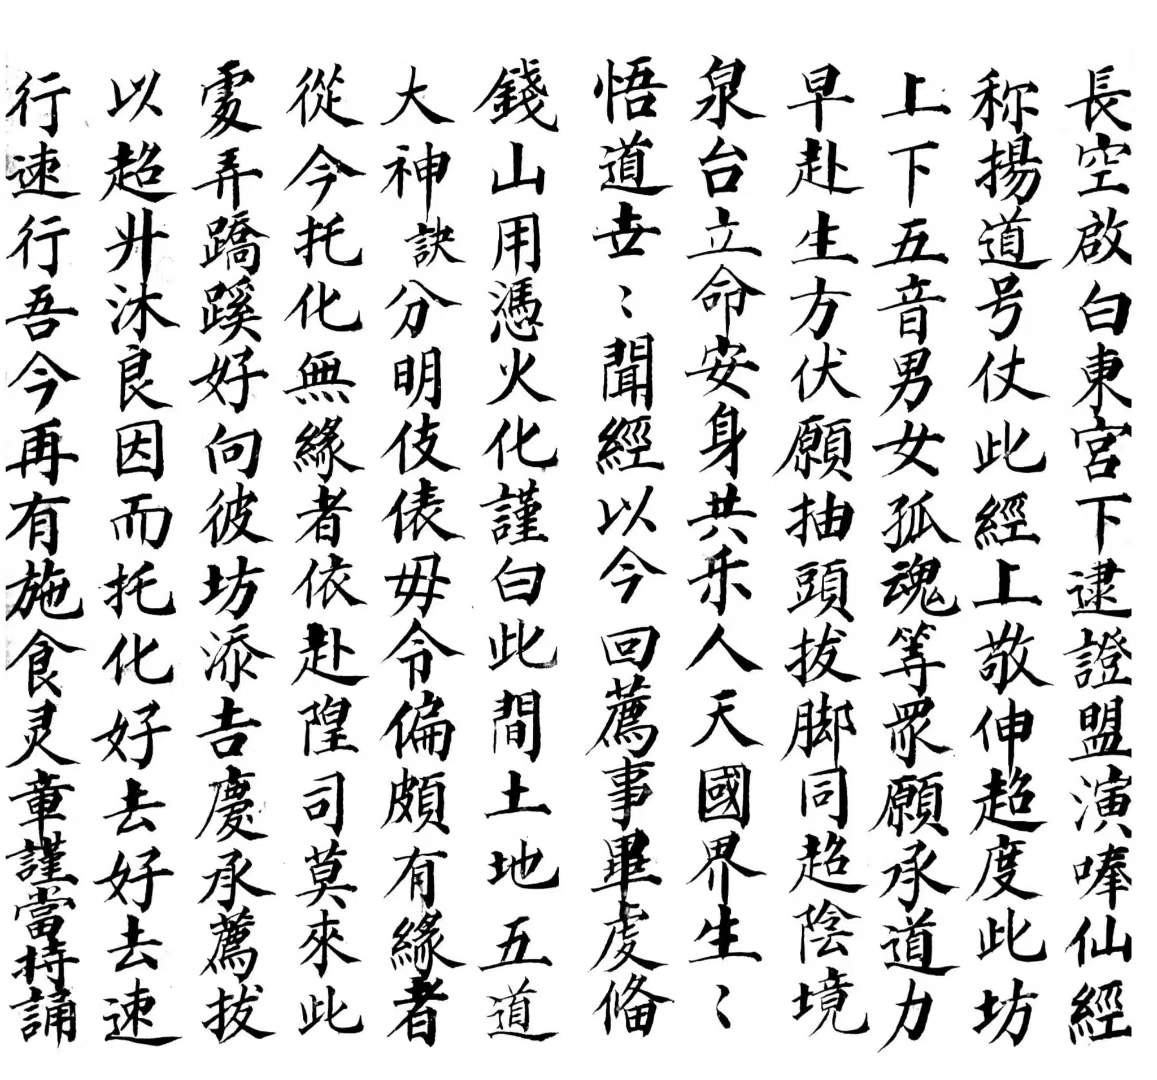 長空啟白東宮下逮證盟演唪仙經
称揚道号仗此經上敬伸超度此坊
上下五音男女孤魂等眾願承道力
早赴生方伏願抽頭拔脚同超陰境
泉台立命安身共乐人天國界生〻
悟道世〻聞經以今回薦事畢虔俻
錢山用憑火化謹白此間土地五道
大神訣分明伎俵毋令偏頗有緣者
從今托化無緣者依赴隍司莫來此
處弄蹻蹊好向彼坊添吉慶承薦拔
以超升沐良因而托化好去好去速
行速行吾今再有施食灵章謹當持誦